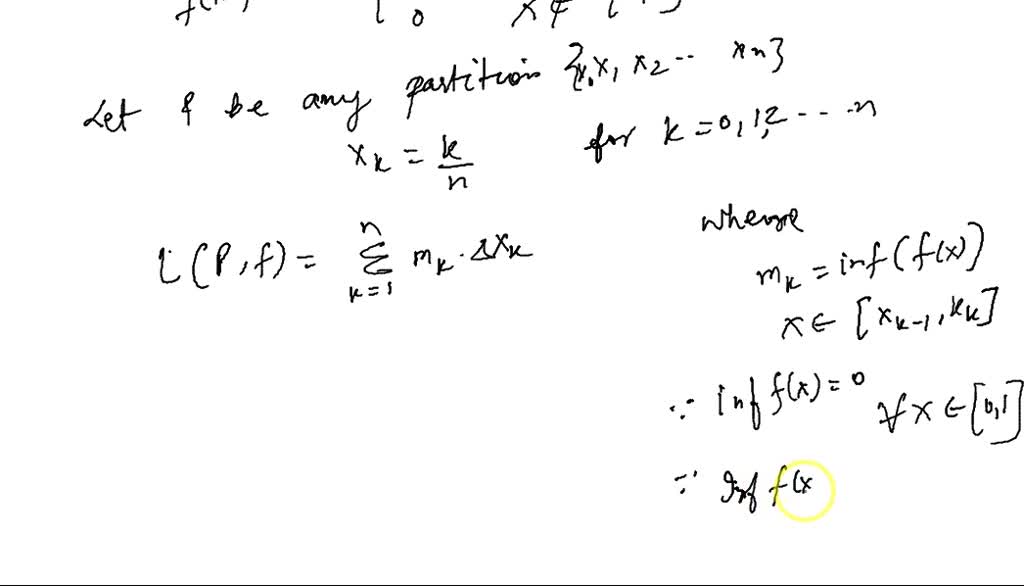 0 x ∉
Let P be any partition {x₀, x₁, x₂ -- xn}
xk = k/n for k = 0, 1, 2, ---- n
L(P, f) = n Σ k=1 mk · Δxk
where
mk = inf(f(x))
x ∈ [xk-1, xk]
∵ inf f(x) = 0 ∀ x ∈ [0,1]
∵ Inf f(x